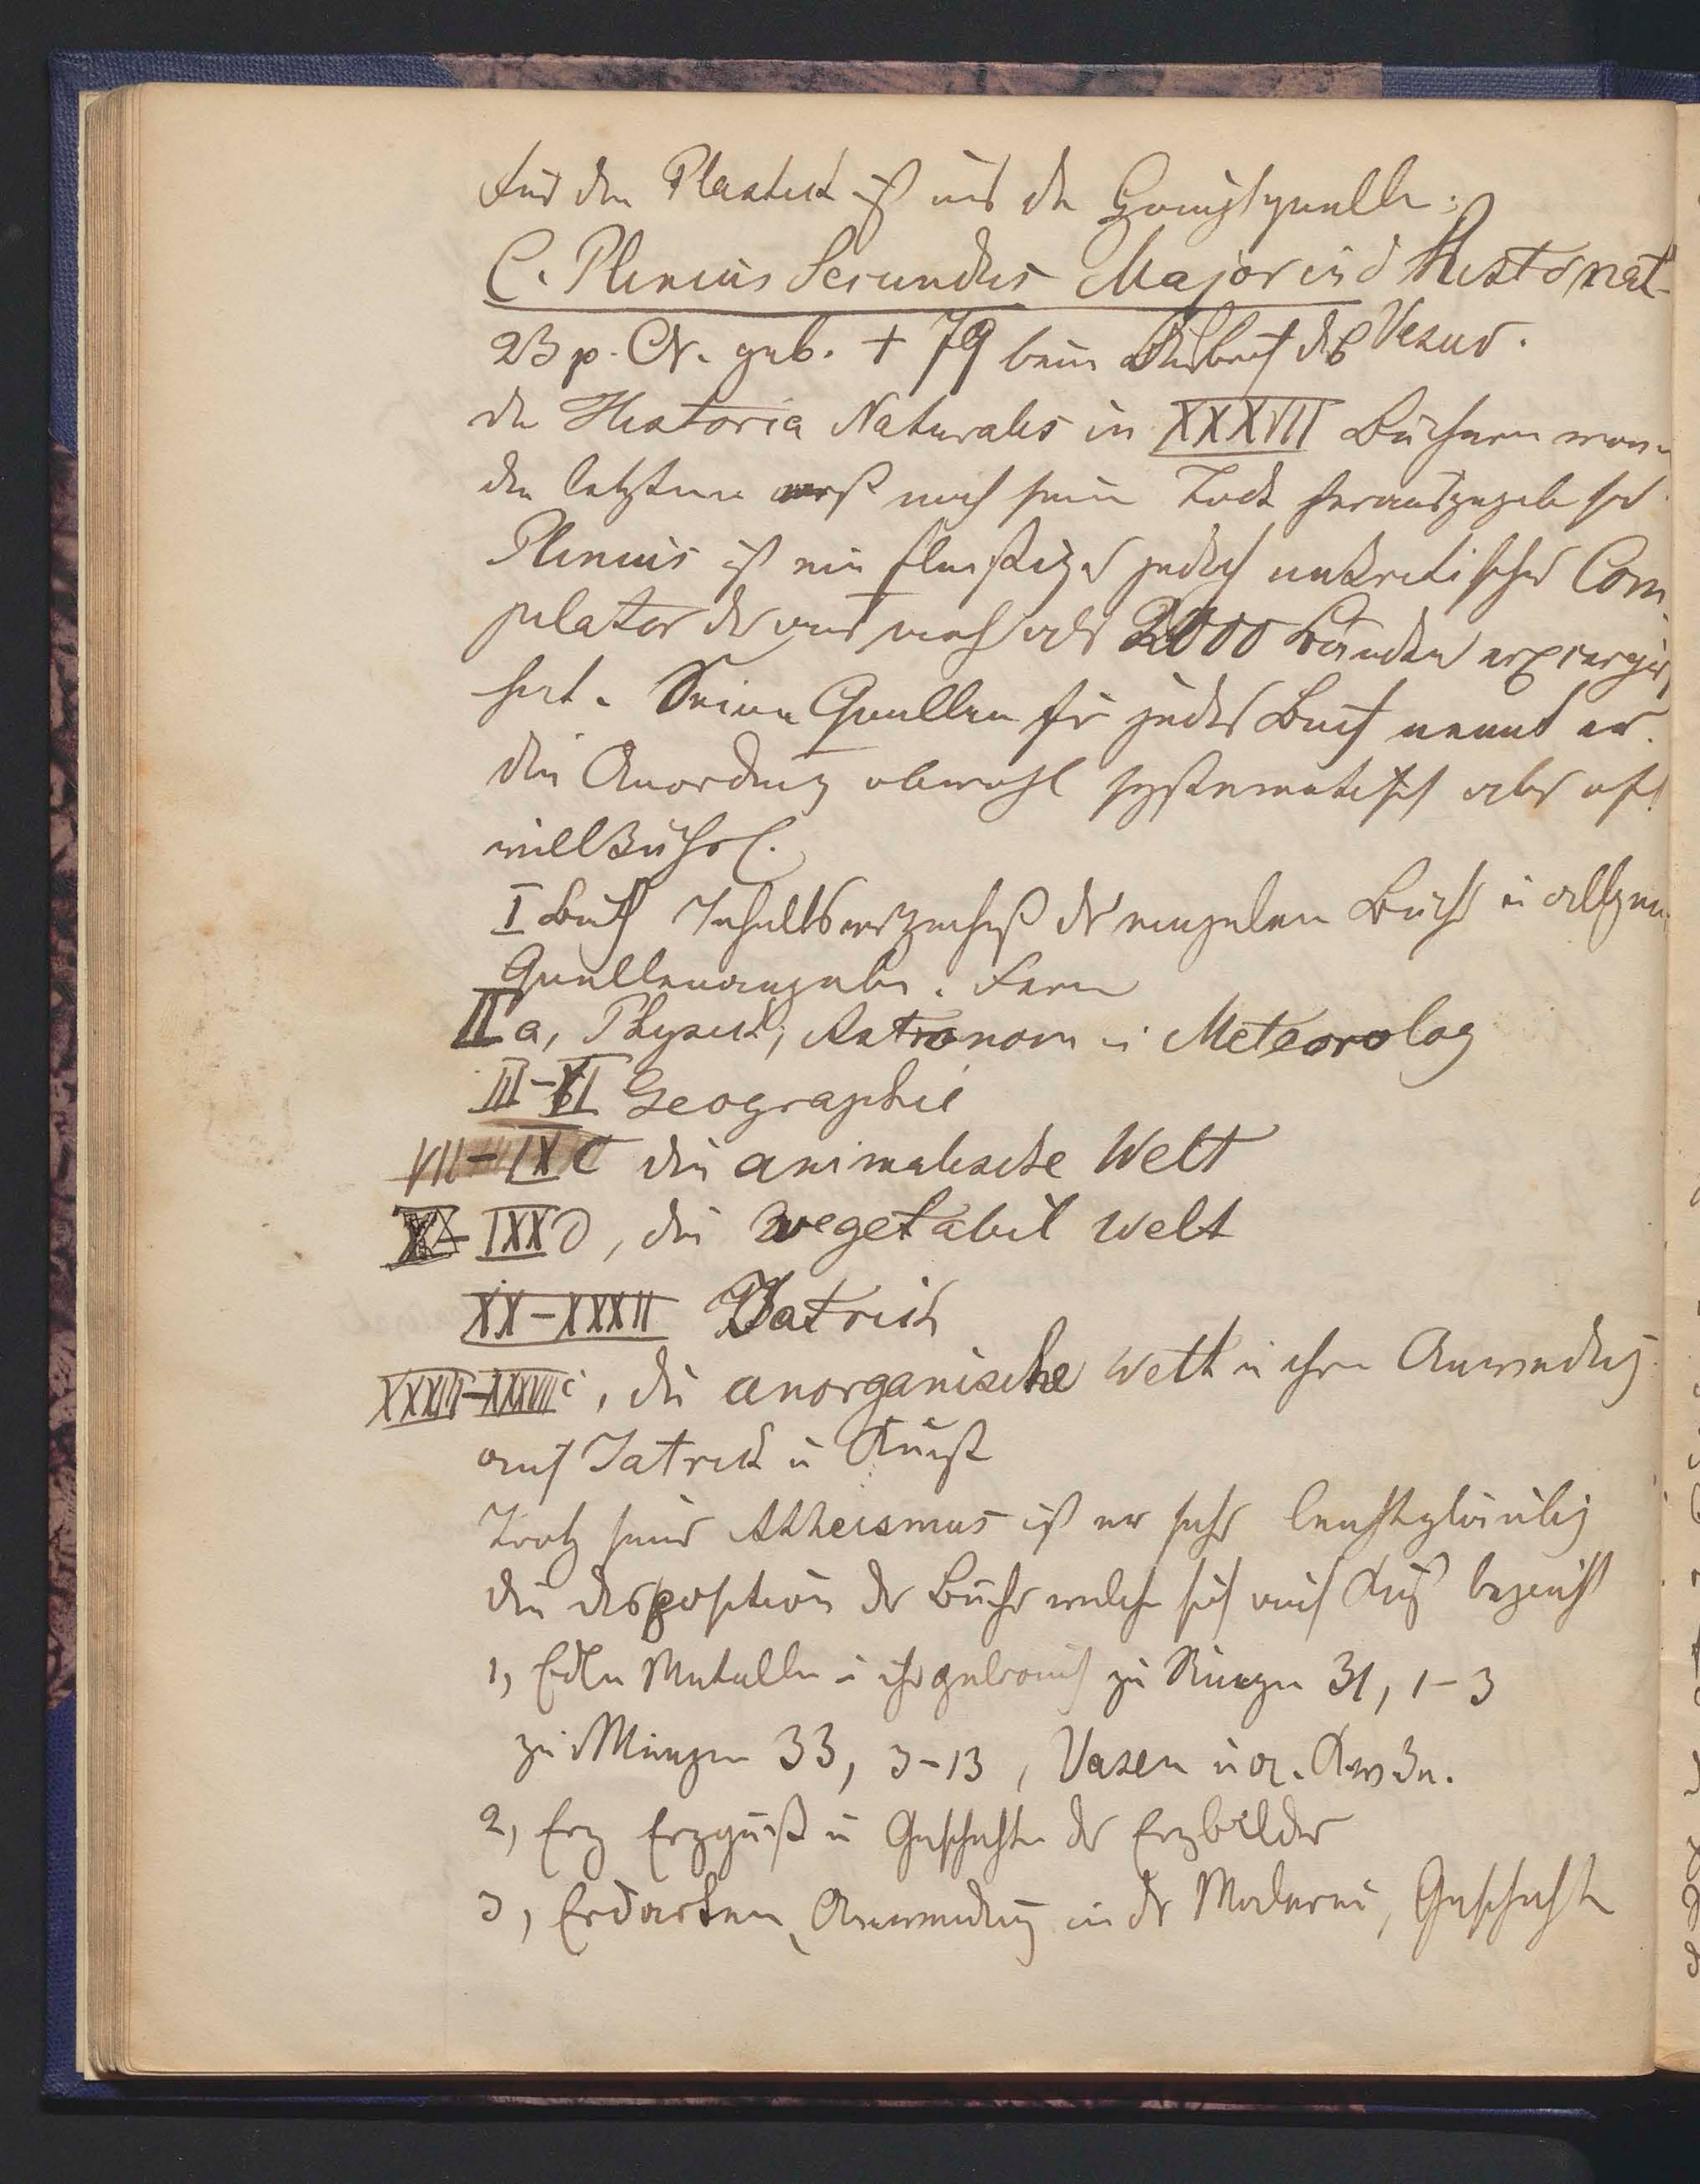 Für den Plastik ist uns die Hauptquelle:
C. Plinius Secundus Major in d Hist. nat.
23 p. Chr. geb. + 79 beim Ausbruch des Vesuv.
die Historia Naturalis in XXXVII Büchern
die letztere erst nach sein Tode herausgegeb
Plinius ist ein fleißiger jedoch unkritischer Com
pilator der aus mehr als 2000 Bänden excerpir
hat. Seine Quellen für jedes Buch nennt er.
die Anordnung obwohl systematisch aber oft
willkührl.
I Buch Inhaltsverzeichniß der einzelnen Bücher u allgem
Quellenangabe. Fern
II a, Physik, Astronom u Meteorolog
III-VI Geographie
VII-IX C die animalische Welt
X-IXX D, die vegetabil Welt
XX-XXXII Iatrik
XXXIII-XXXVII, die anorganische Welt u ihre Anwendung
auf Iatrik u Kunst
Trotz seines Atheismus ist er sehr leichtgläubig
die disposition der Bücher welche sich auf Kunst bezieht
1, Edle Metalle u ihr gebrauch zu Ringen 31, 1-3
zu Münzen 33, 3-13, Vasen u a.
2, Erz Erzguß u Geschichte der Erzbilder
3, Erdarten, Anwendung in der Malerei, Geschichte